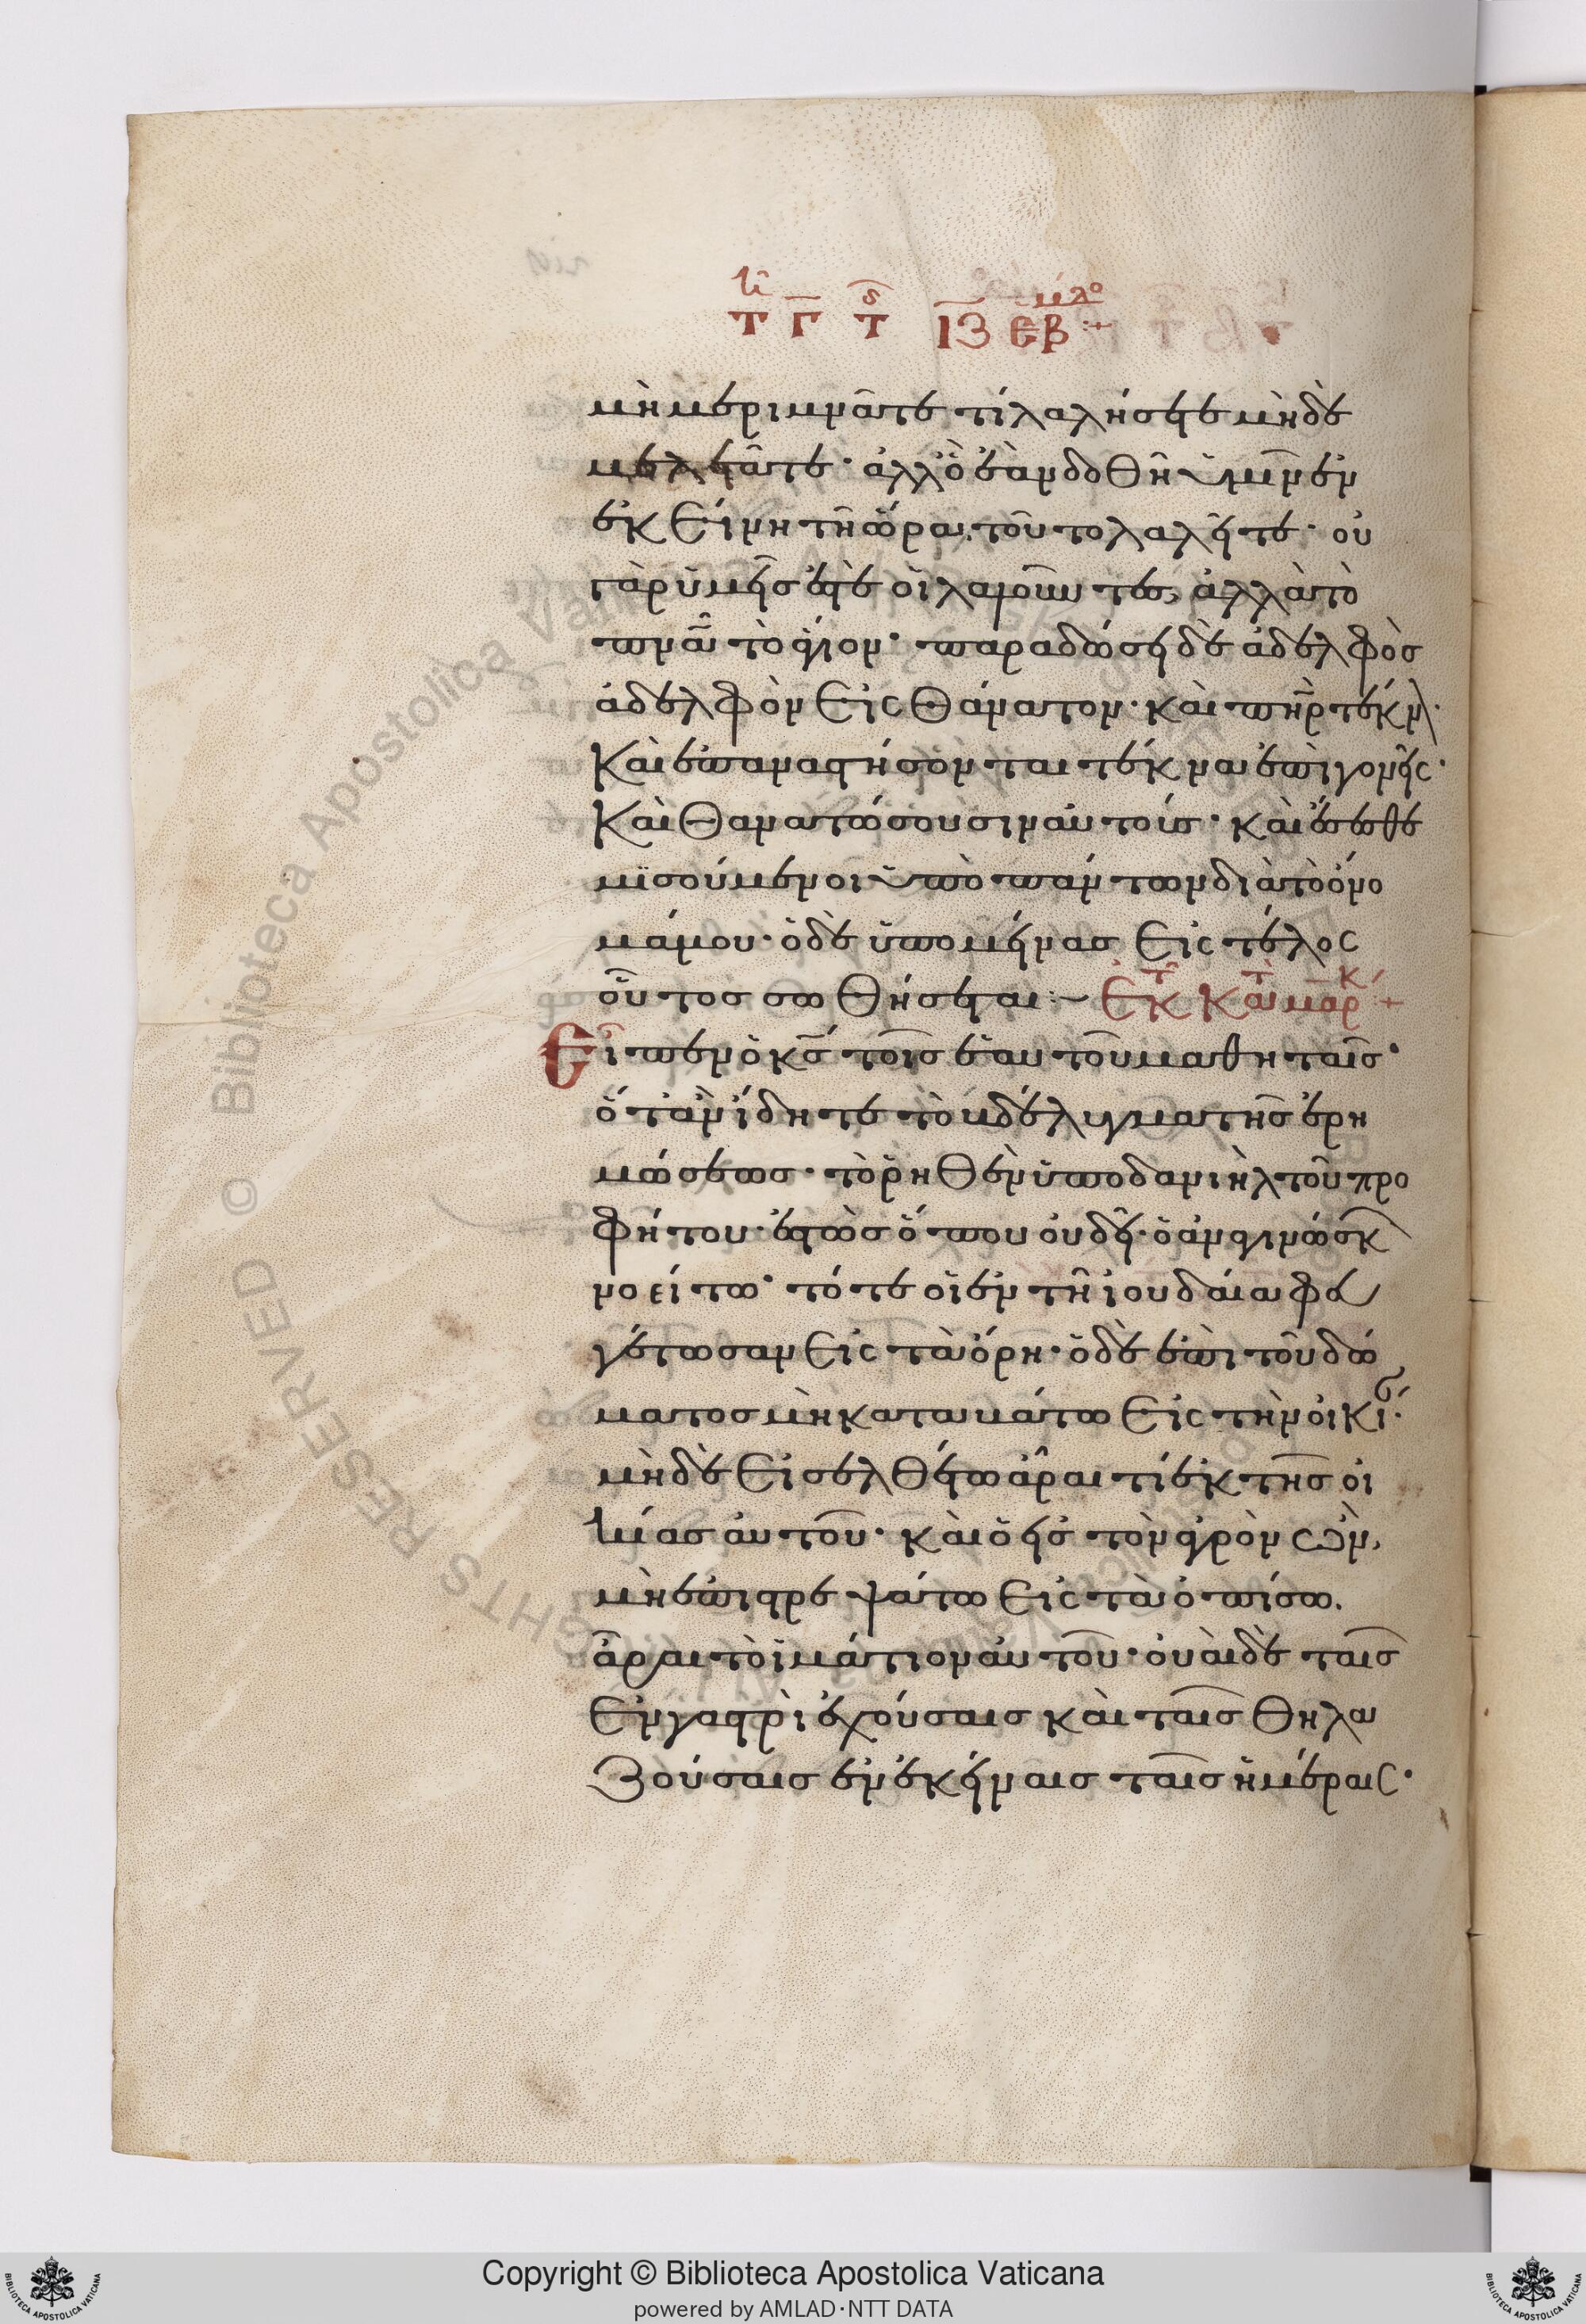 τῇ γ̅ τ̅ς̅ ιζ εβδομάδος
μὴ μεριμνᾶτε τί λαλήσητε μὴ δὲ
μελετᾶτε· ἀλλ' ὃ ἐὰν δοθῆ ὑμῖν ἐν
ἐκείνη τῆ ὥρα, τοῦτο λαλεῖτε· οὐ
γὰρ ὑμεῖς ἐστὲ οἱ λαλοῦντες, ἀλλὰ τὸ
πνᾶ τὸ ἅγιον· παραδώσει δὲ ἀδελφὸς
ἀδελφὸν εἰς θάνατον· καὶ πηρ τέκν·
καὶ ἐπαναστήσονται τέκνα ἐπὶ γονεῖς·
καὶ θανατώσουσιν αὐτούς· καὶ ἔσεσθε
μισούμενοι ὑπὸ πάντων διὰ τὸ ὄνο
μά μου· ὁ δὲ ὑπομείνας εἰς τέλος
οὗτος σωθήσεται:~ Ἐκ τ κατ μάρκ:+
Εἶπεν ὁ κς τοῖς ἑαυτοῦ μαθηταῖς·
ὅταν ἴδητε τὸ βδέλυγμα τῆς ἐρη
μώσεως· τὸ ῥηθὲν ὑπὸ δανιὴλ τοῦ προ
φήτου· ἑστὼς ὅπου οὐ δεῖ· ὁ ἀναγινώσκ
νοείτω· τότε οἱ ἐν τῆ ἰουδαία φευ
γέτωσαν εἰς τὰ ὄρη· ὁ δὲ ἐπὶ τοῦ δώ
ματος μὴ καταβάτω εἰς τὴν οἰκί·
μὴ δὲ εἰσελθέτω ἆραι τί ἐκ τῆς οἰ
κίας αὐτοῦ· καὶ ὁ εἰς τὸν ἀγρὸν ὢν,
μὴ ἐπιστρεψάτω εἰς τὰ ὀπίσω.
ἆραι τὸ ἱμάτιον αὐτοῦ· οὐαὶ δὲ ταῖς
ἐν γαστρὶ ἐχούσαις καὶ ταῖς θηλα
ζούσαις ἐν ἐκείναις ταῖς ἡμέραις·
© Biblioteca Apostolica Vaticana
RIGHTS RESERVED
Copyright © Biblioteca Apostolica Vaticana
powered by AMLAD·NTT DATA
BIBLIOTECA APOSTOLICA VATICANA
BIBLIOTECA APOSTOLICA VATICANA